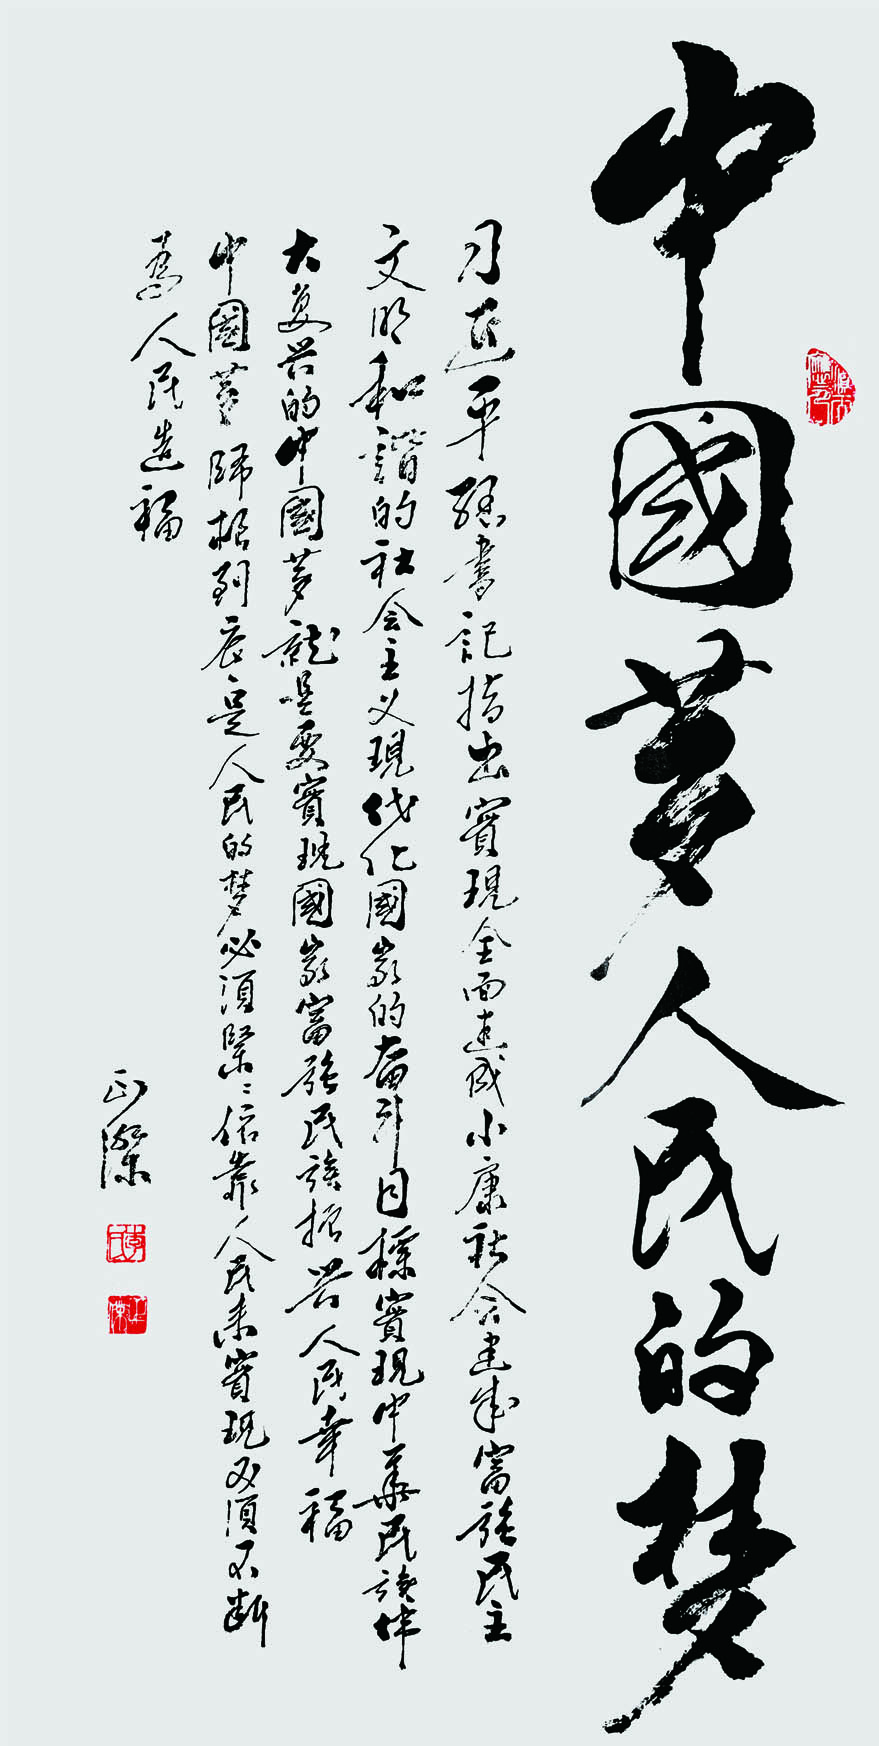 中國夢人民的梦
习近平總書記指出實現全面建成小康社会建成富强民主
文明和諧的社会主义現代化國家的奋斗目標實現中華民族伟
大复兴的中國夢就是要實現國家富强民族振兴人民幸福
中國夢歸根到底是人民的梦必須緊緊依靠人民来實現必須不断
為人民造福